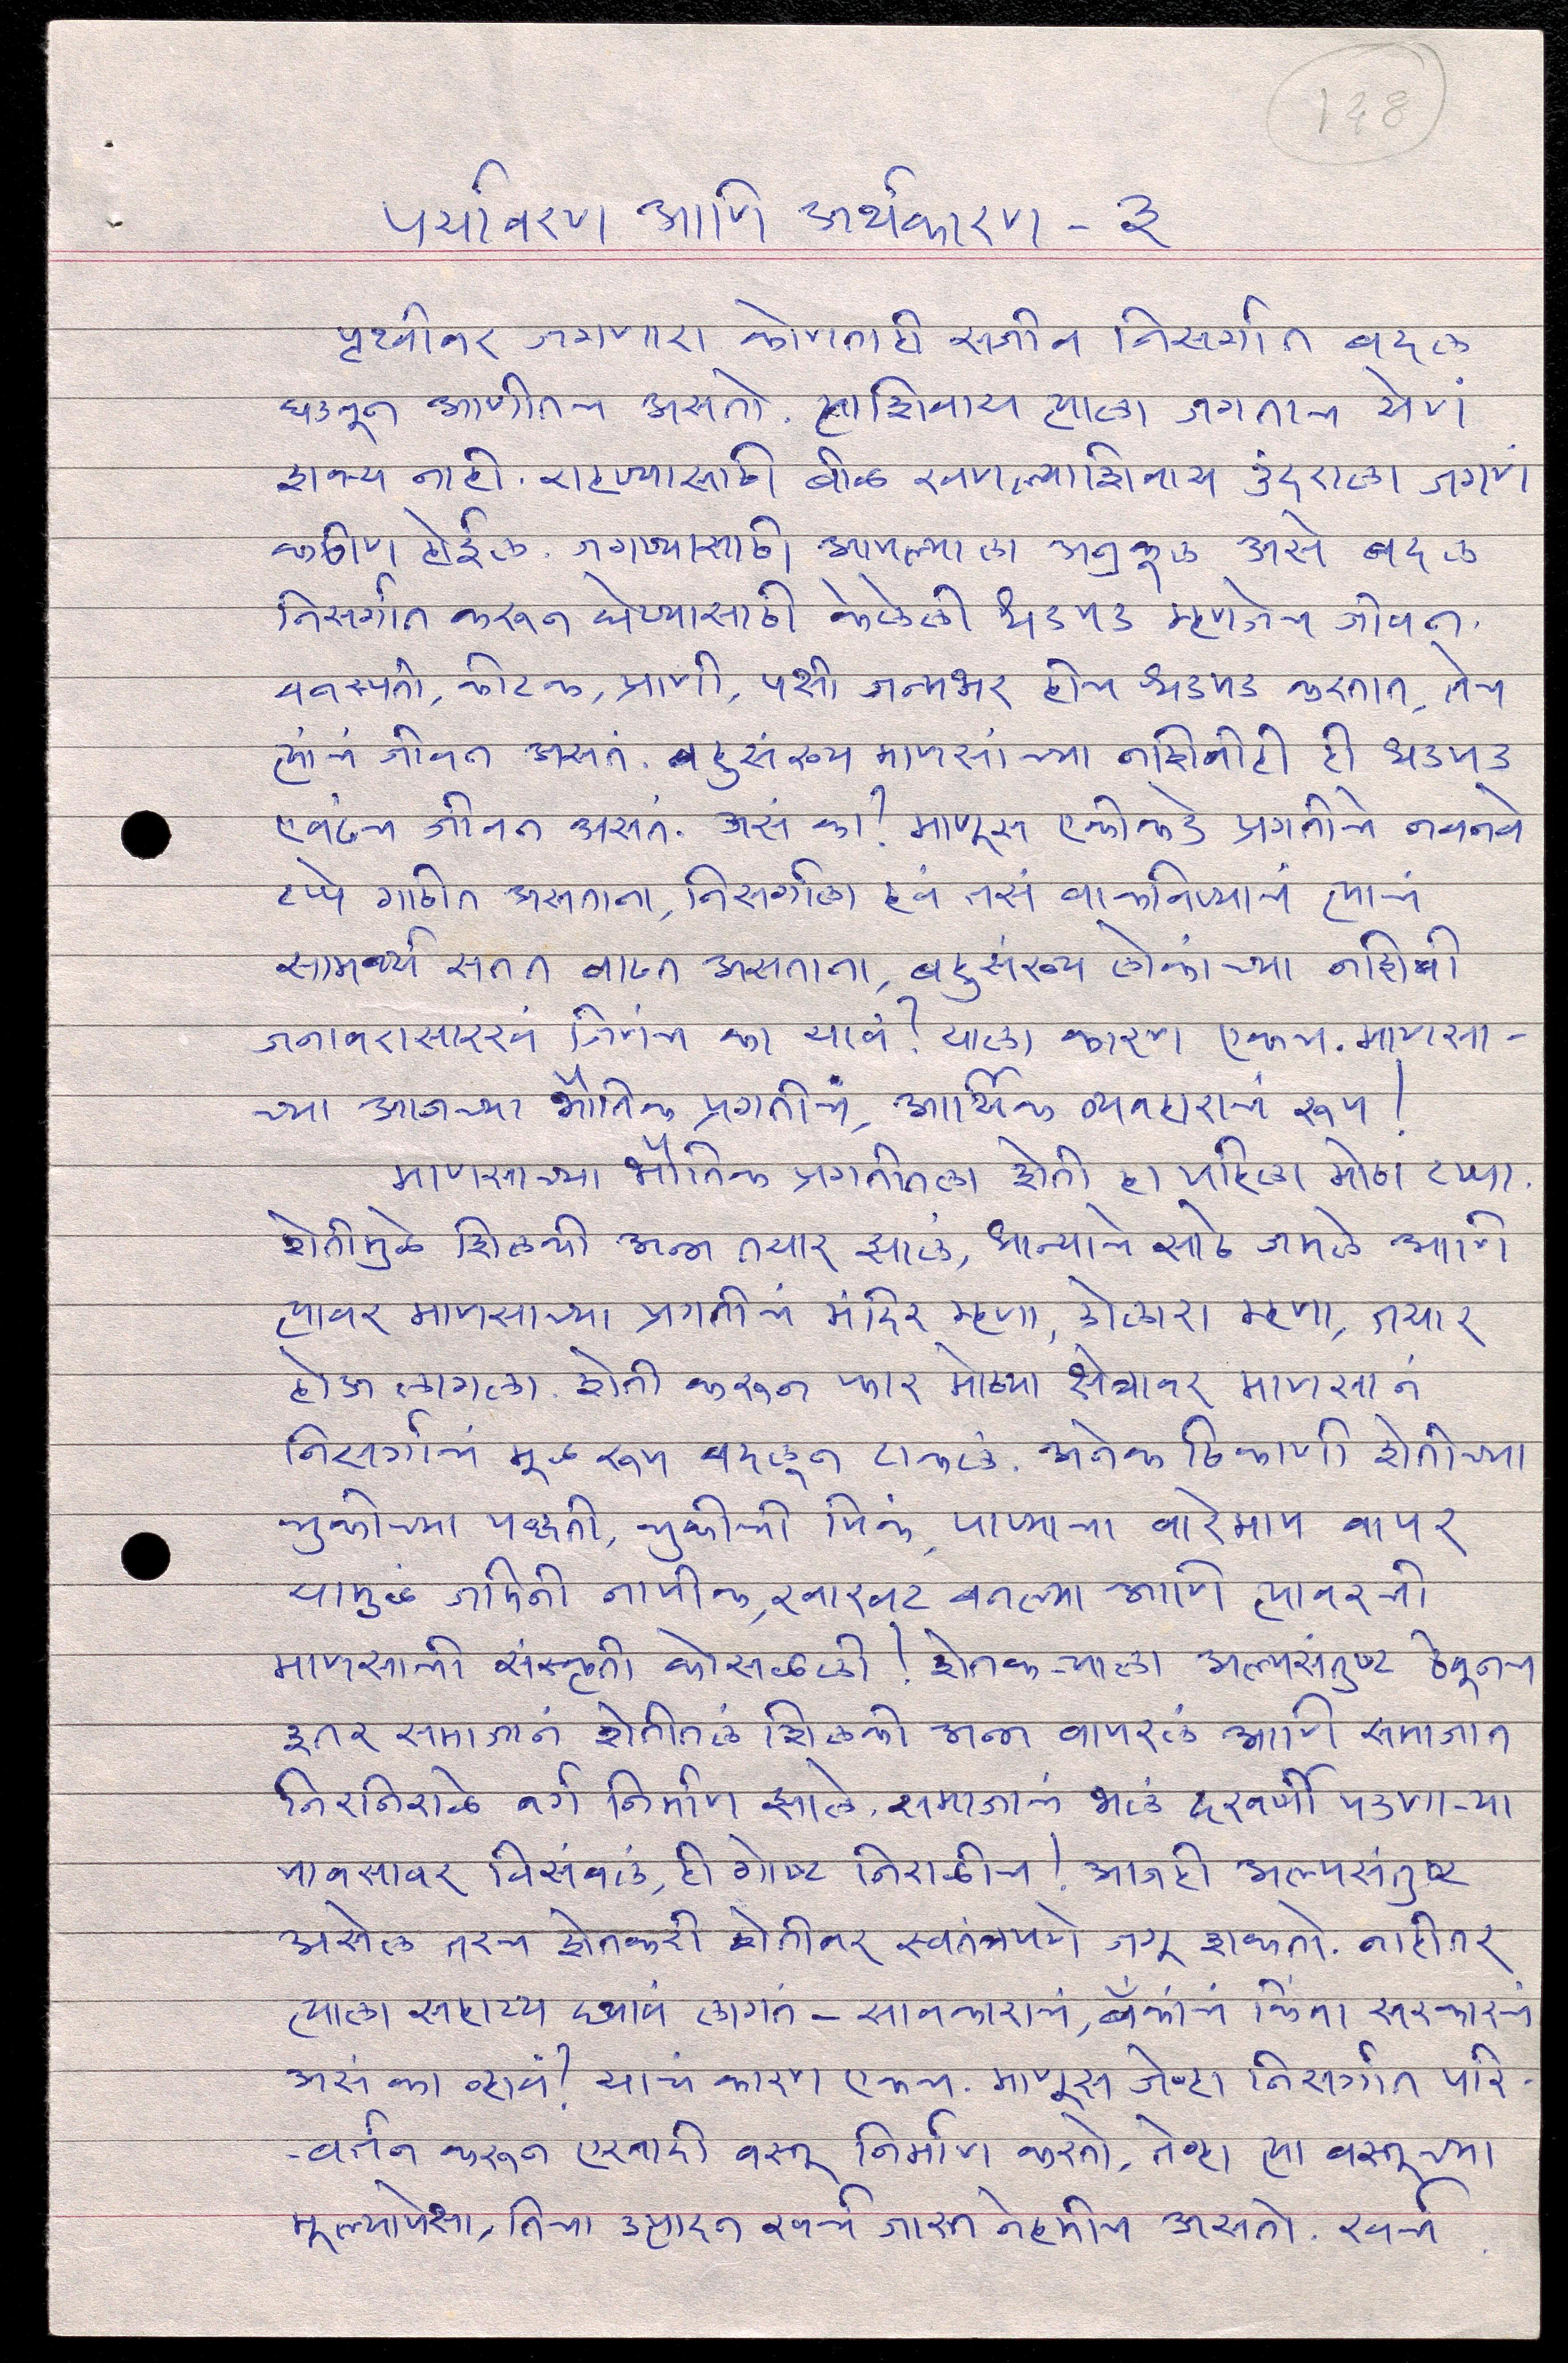 128
पर्यावरण आणि अर्थकारण - ३
पृथ्वीवर जगणारा कोणताही सजीव निसर्गात बदल
घडवून आणीतच असतो. त्याशिवाय त्याला जगताच येणं
शक्य नाही. राहण्यासाठी बीळ खणल्याशिवाय उंदराला जगणं
कठीण होईल. जगण्यासाठी आपल्याला अनुकूल असे बदल
निसर्गात करून घेण्यासाठी केलेली धडपड म्हणजेच जीवन.
वनस्पती, कीटक, प्राणी, पक्षी जन्मभर हीच धडपड करतात, तेच
त्यांचं जीवन असतं. बहुसंख्य माणसांच्या नशिबीही ही धडपड
एवढंच जीवन असतं. असं का? माणूस एकीकडे प्रगतीचे नवनवे
टप्पे गाठीत असताना, निसर्गाला हवं तसं वाकविण्याचं त्याचं
सामर्थ्य सतत वाढत असताना, बहुसंख्य लोकांच्या नशिबी
जनावरासारखं जिणंच का यावं? याला कारण एकच. माणसा-
च्या आजच्या भौतिक प्रगतीचं, आर्थिक व्यवहाराचं रूप!
माणसाच्या भौतिक प्रगतीतला शेती हा पहिला मोठा टप्पा.
शेतीमुळे शिलकी अन्न तयार झालं, धान्याचे साठे जमले आणि
त्यावर माणसाच्या प्रगतीचं मंदिर म्हणा, डोलारा म्हणा, तयार
होऊ लागला. शेती करून फार मोठ्या क्षेत्रावर माणसानं
निसर्गाचं मूळ रूप बदलून टाकलं. अनेक ठिकाणी शेतीच्या
चुकीच्या पध्दती, चुकीची पिकं, पाण्याचा वारेमाप वापर
यामुळं जमिनी नापीक, खारवट बनल्या आणि त्यावरची
माणसाची संस्कृती कोसळली! शेतकऱ्याला अल्पसंतुष्ट ठेवूनच
इतर समाजानं शेतीतलं शिलकी अन्न वापरलं आणि समाजात
निरनिराळे वर्ग निर्माण झाले. समाजाचं भलं दरवर्षी पडणाऱ्या
पावसावर विसंबलं, ही गोष्ट निराळीच! आजही अल्पसंतुष्ट
असेल तरच शेतकरी शेतीवर स्वतंत्रपणे जगू शकतो. नाहीतर
त्याला सहाय्य घ्यावं लागतं - सावकाराचं, बँकांचं किंवा सरकारचं
असं का व्हावं? याचं कारण एकच. माणूस जेव्हा निसर्गात परि-
-वर्तन करून एखादी वस्तू निर्माण करतो, तेव्हा त्या वस्तूच्या
मूल्यापेक्षा, तिचा उत्पादन खर्च जास्त नेहमीच असतो. खर्च